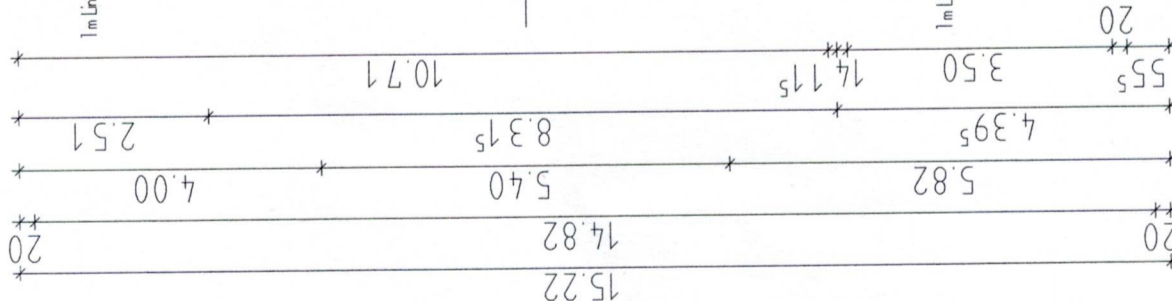 15.22
20 14.82 20
5.82 5.40 4.00
4.39⁵ 8.31⁵ 2.51
55⁵ 3.50 14 11⁵ 10.71
20
1 m L
1 m Lin